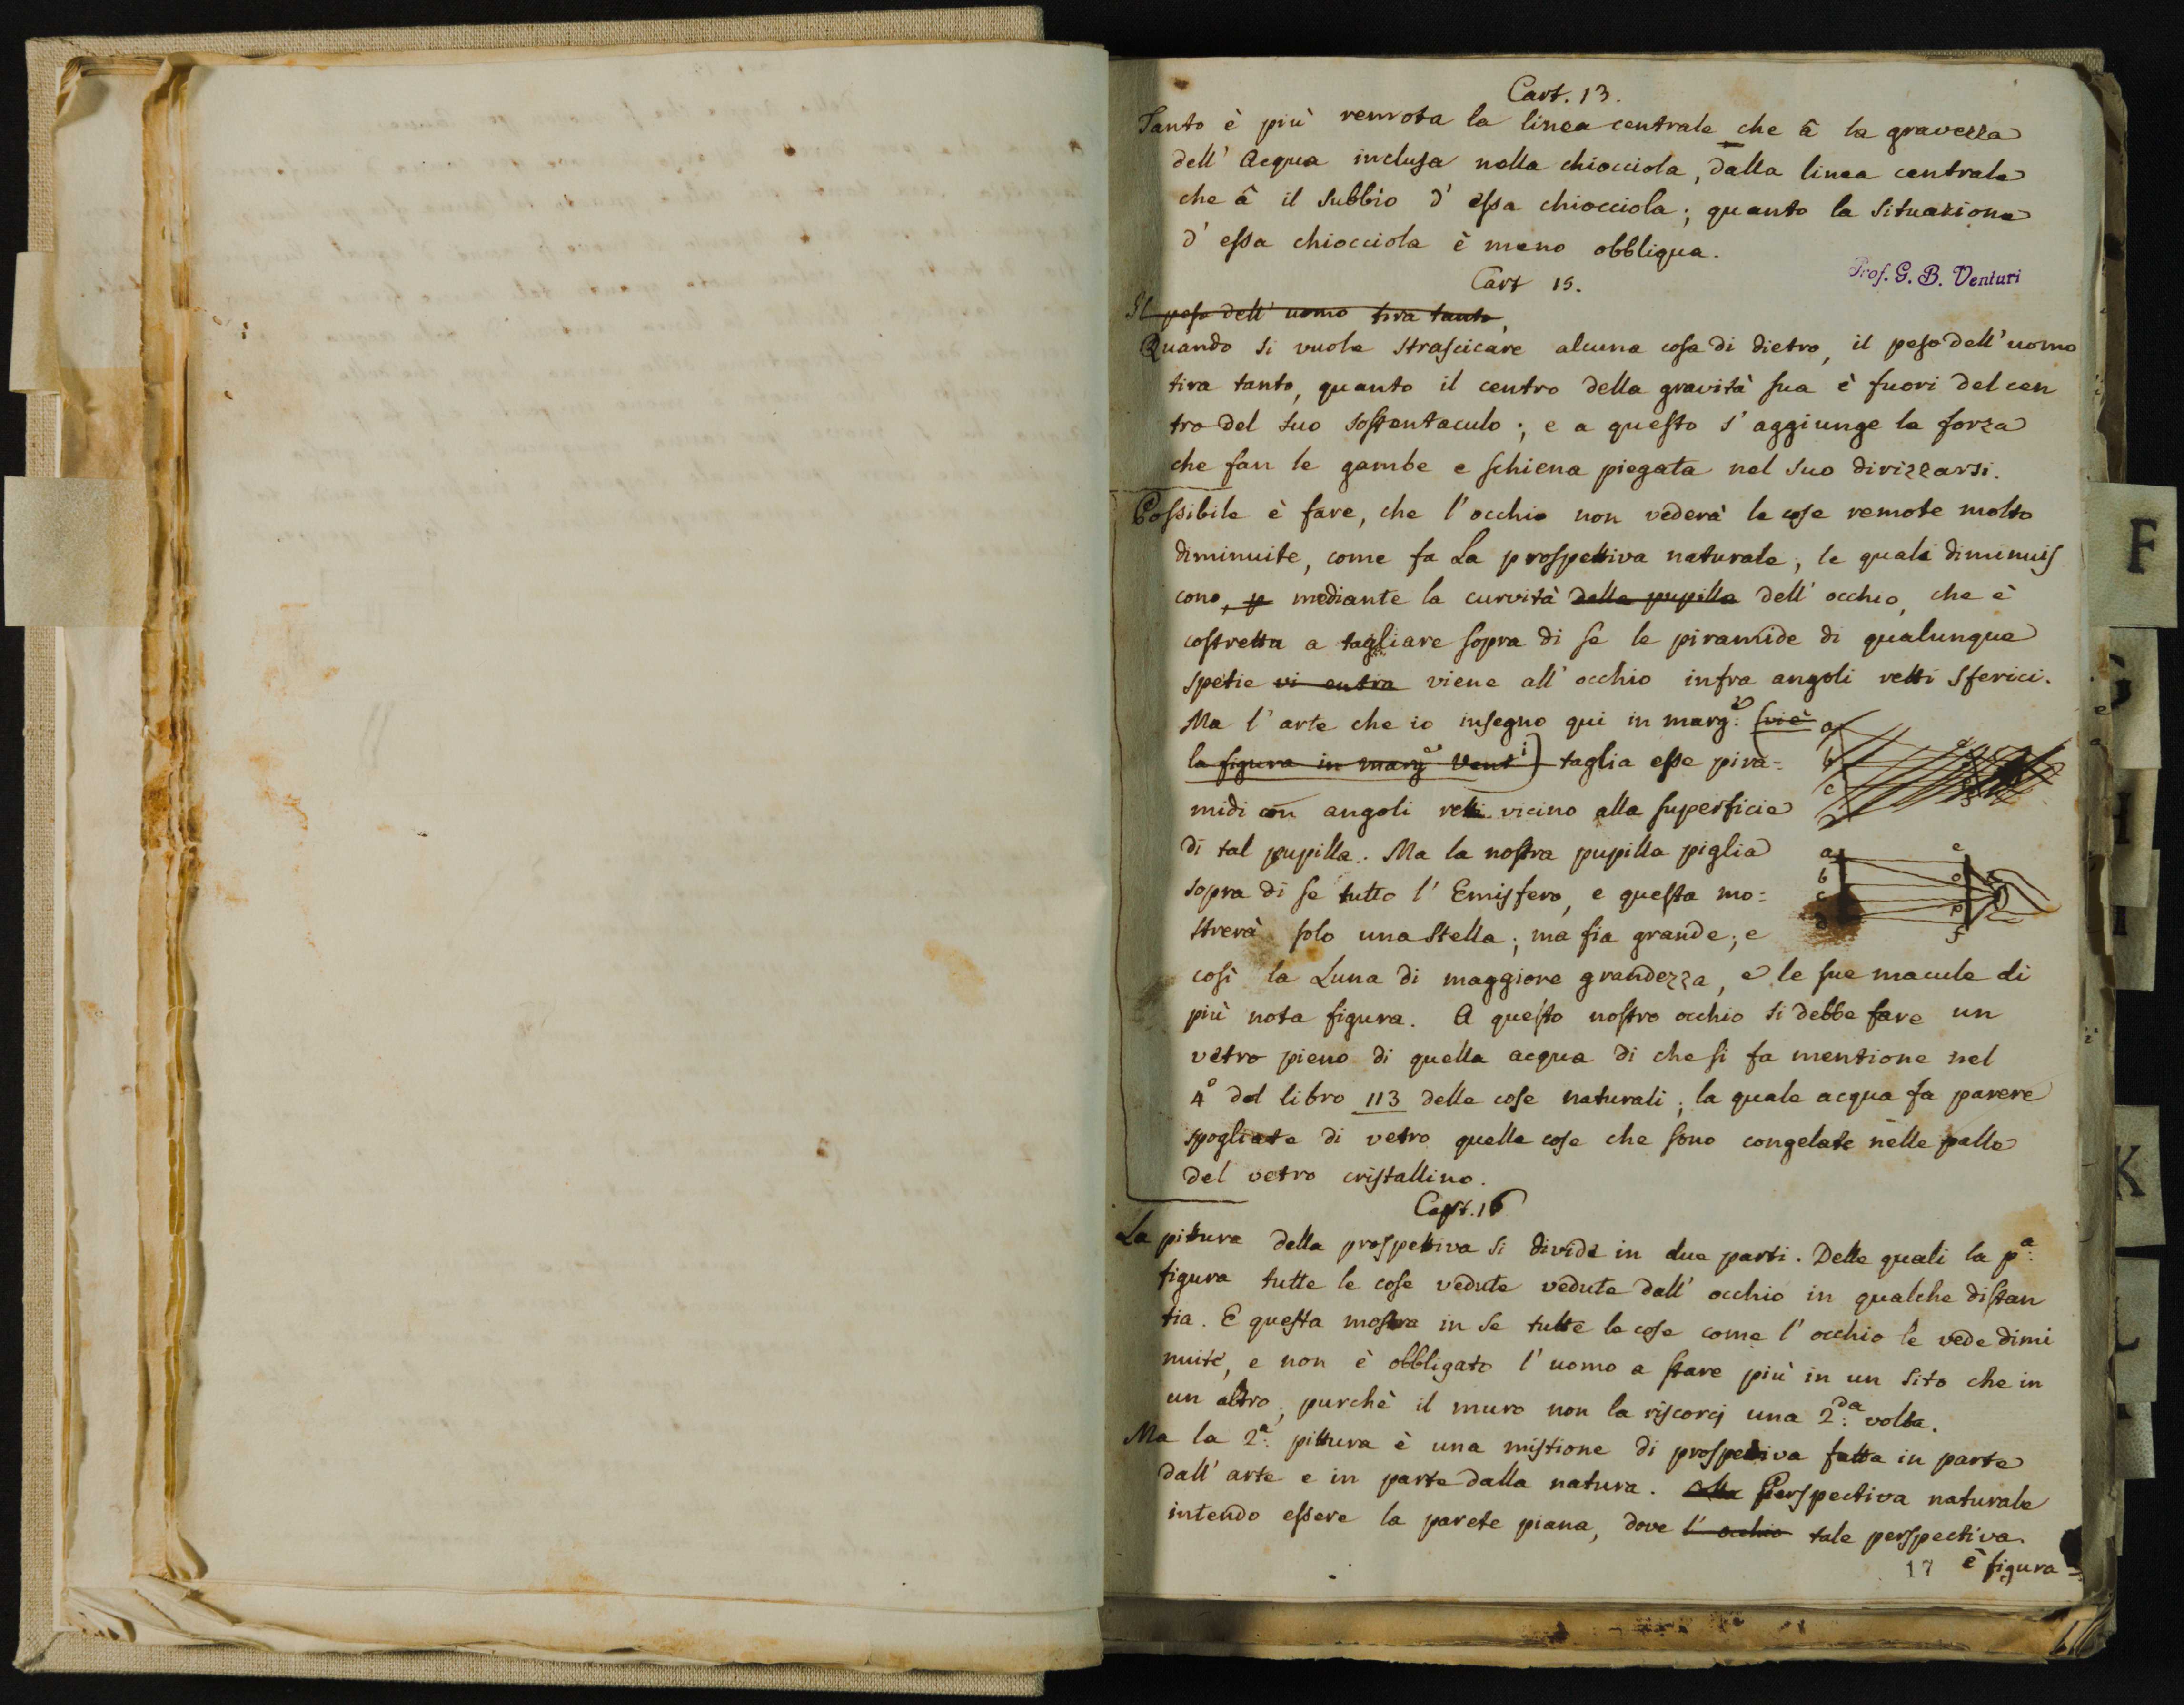 Cart. 13.
Tanto è più remota la linea centrale che â la gravezza
dell' Acqua inclusa nella chiocciola, dalla linea centrale
che â il subbio d' essa chiocciola; quanto la situazione
d' essa chiocciola è meno obbliqua.
Prof. G. B. Venturi
Cart 15.
Il peso dell' uomo tira tanto,
Quando si vuole strascicare alcuna cosa di dietro, il peso dell' uomo
tira tanto, quanto il centro della gravità sua è fuori del cen
tro del suo sostentaculo; e a questo s' aggiunge la forza
che fan le gambe e schiena piegata nel suo dirizzarsi.
Possibile è fare, che l' occhio non vederà le cose remote molto
diminuite, come fa La prospettiva naturale, le quali diminuis
cono, p mediante la curvità della pupilla dell' occhio, che è
costretta a tagliare sopra di se le piramide di qualunque
spetie vi entra viene all' occhio infra angoli retti sferici.
Ma l' arte che io insegno qui in marg.e (vi è
la figura in marg.e Vent.i) taglia esse pira=
midi con angoli retti vicino alla superficie
di tal pupilla. Ma la nostra pupilla piglia
sopra di se tutto l' Emisfero, e questa mo=
strerà solo una Stella; ma fia grande; e
così la Luna di maggiore grandezza, e le sue macule di
più nota figura. A questo nostro occhio si debbe fare un
vetro pieno di quella acqua di che si fa mentione nel
4° del libro 113 delle cose naturali; la quale acqua fa parere
spogliate di vetro quelle cose che sono congelate nelle palle
del vetro cristallino.
a
b
c
a
b
c
d
e
o
p
f
Cart. 16
La pittura della prospettiva si divide in due parti. Delle quali la p.a
figura tutte le cose vedute vedute dall' occhio in qualche distan
tia. E questa mostra in se tutte le cose come l' occhio le vede dimi
nuite, e non è obbligato l' uomo a stare più in un sito che in
un altro, purchè il muro non la riscorcj una 2.da volta.
Ma la 2.a pittura è una mistione di prospettiva fatta in parte
dall' arte e in parte dalla natura. Perspectiva naturale
intendo essere la parete piana, dove l' occhio tale perspectiva
17 è figura=
F
H
I
K
L